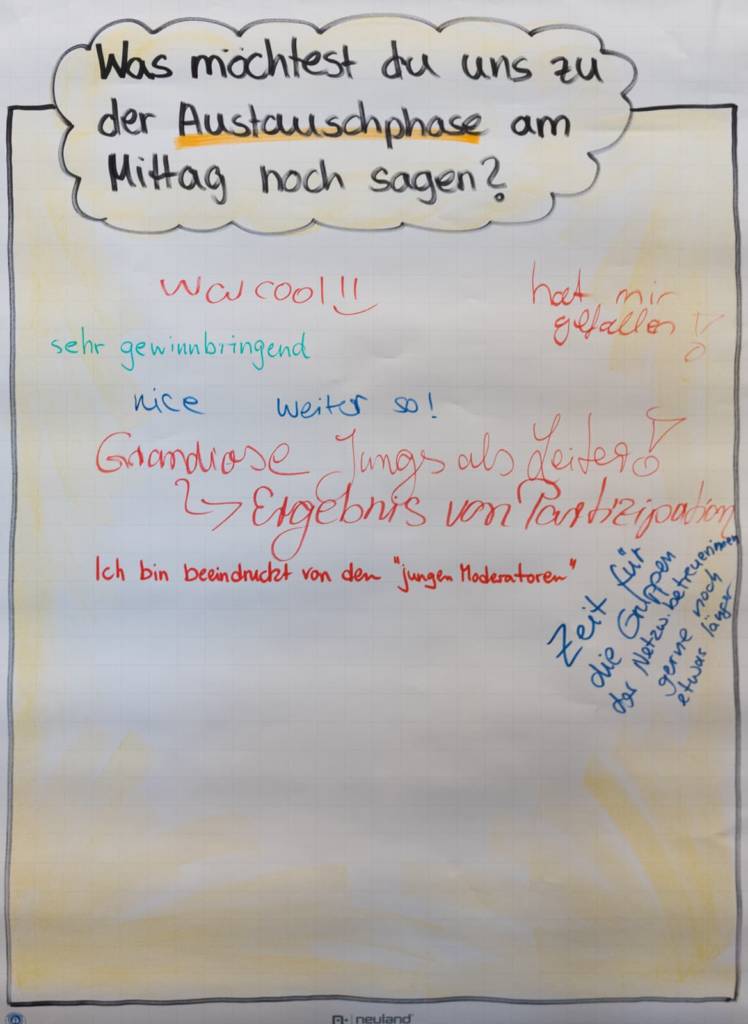 Was möchtest du uns zu
der Austauschphase am
Mittag noch sagen?
War cool!!
hat mir
gefallen!
sehr gewinnbringend
nice weiter so!
Grandiose Jungs als Leiter!
↳ Ergebnis von Partizipation
Ich bin beeindruckt von den "jungen Moderatoren"
Zeit für
die Gruppen
der Netzw.betreuerinnen
gerne noch
etwas länger
neuland